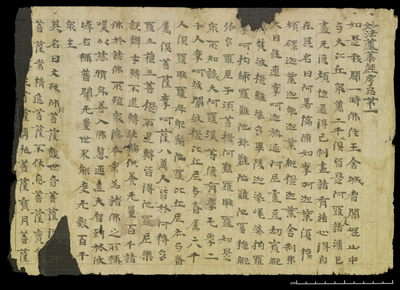 妙法蓮華經序品第一
如是我聞一時佛住王舍城耆闍崛山中
与大比丘眾万二千人俱皆是阿羅漢諸漏已
盡无復煩惱逮得己利盡諸有結心得自
在其名曰阿若憍陳如摩訶迦葉優樓
頻螺迦葉伽耶迦葉那提迦葉舍利弗
大目揵連摩訶迦旃延阿㝹樓馱劫賓那
梵波提離婆多畢陵伽婆蹉薄拘羅
訶拘絺羅難陀孫陀羅難陀富樓那
多羅尼子須菩提阿難羅睺羅如是
眾所知識大阿羅漢等復有學无學二
千人摩訶波闍波提比丘尼与眷屬六千
人俱羅睺羅母耶輸陀羅比丘尼亦与眷
屬俱菩薩摩訶薩八万人皆於阿耨多
羅三藐三菩提不退轉皆得陀羅尼樂
說辯才轉不退轉法輪供養无量百千諸
佛於諸佛所殖眾德本常為諸佛之所稱
歎以慈脩身善入佛慧通達大智到於彼
岸名稱普聞无量世界能度无數百千
眾生
其名曰文殊師利菩薩觀世音菩薩得
菩薩常精進菩薩不休息菩薩寶
勇施菩薩寶月菩薩